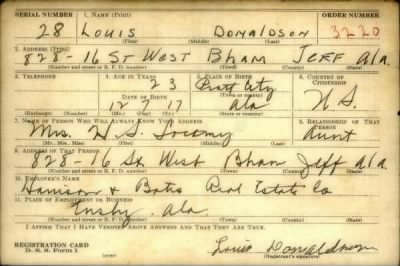 SERIAL NUMBER 1. NAME (Print) ORDER NUMBER
28 LOUIS DONALDSON 3220
(First) (Middle) (Last)
2. ADDRESS (Print)
828-16 ST WEST BHAM JEFF Ala.
(Number and street or R. F. D. number) (Town) (County) (State)
3. TELEPHONE 4. AGE IN YEARS 5. PLACE OF BIRTH 6. COUNTRY OF CITIZENSHIP
23 Pratt City
(Town or county)
DATE OF BIRTH
12 7 17 Ala U.S.
(Exchange) (Number) (Mo.) (Day) (Yr.) (State or country)
7. NAME OF PERSON WHO WILL ALWAYS KNOW YOUR ADDRESS 8. RELATIONSHIP OF THAT PERSON
Mrs. H. S. Aunt
(Mr., Mrs., Miss) (First) (Middle) (Last)
9. ADDRESS OF THAT PERSON
828-16 St West Bham Jeff Ala.
(Number and street or R. F. D. number) (Town) (County) (State)
10. EMPLOYER'S NAME
Harrison & Real Estate Co
11. PLACE OF EMPLOYMENT OR BUSINESS
Ensley Ala.
(Number and street or R. F. D. number) (Town) (County) (State)
I AFFIRM THAT I HAVE VERIFIED ABOVE ANSWERS AND THAT THEY ARE TRUE.
REGISTRATION CARD
D. S. S. Form 1
Louis Donaldson
(Registrant's signature)